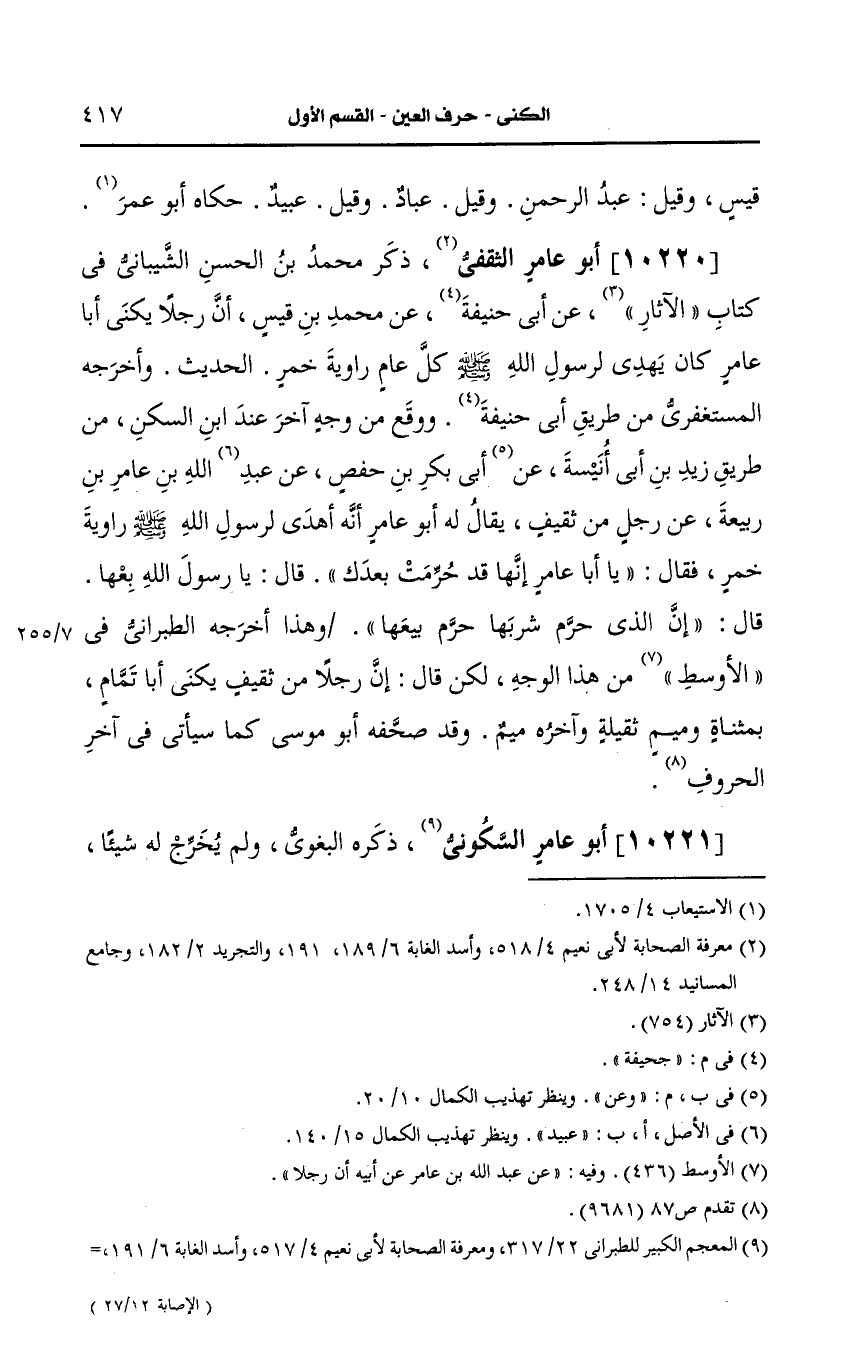 الكنى - حرف العين - القسم الأول ٤١٧
قيسٍ ، وقيل : عبدُ الرحمنِ . وقيل . عبادٌ . وقيل . عبيدٌ . حكاه أبو عمرَ(١) .
[١٠٢٢٠] أبو عامرٍ الثقفىُّ(٢) ، ذكَر محمدُ بنُ الحسنِ الشَّيبانىُّ فى
كتابِ « الآثارِ »(٣) ، عن أبى حنيفةَ(٤) ، عن محمدِ بنِ قيسٍ ، أنَّ رجلًا يكنَى أبا
عامرٍ كان يَهدِى لرسولِ اللهِ ﷺ كلَّ عامٍ راويةَ خمرٍ . الحديث . وأخرَجه
المستغفرىُّ من طريقِ أبى حنيفةَ(٤) . ووقَع من وجهٍ آخرَ عندَ ابنِ السكنِ ، من
طريقِ زيدِ بنِ أبى أُنَيْسةَ ، عن(٥) أبى بكرِ بنِ حفصٍ ، عن عبدِ(٦) اللهِ بنِ عامرِ بنِ
ربيعةَ ، عن رجلٍ من ثقيفٍ ، يقالُ له أبو عامرٍ أنَّه أهدَى لرسولِ اللهِ ﷺ راويةَ
خمرٍ ، فقال : « يا أبا عامرٍ إنَّها قد حُرِّمَتْ بعدَك » . قال : يا رسولَ اللهِ بِعْها .
قال : « إنَّ الذى حرَّم شربَها حرَّم بيعَها » . /وهذا أخرَجه الطبرانىُّ فى ٢٥٥/٧
« الأوسطِ »(٧) من هذا الوجهِ ، لكن قال : إنَّ رجلًا من ثقيفٍ يكنَى أبا تَمَّامٍ ،
بمثناةٍ وميمٍ ثقيلةٍ وآخرُه ميمٌ . وقد صحَّفه أبو موسى كما سيأتى فى آخرِ
الحروفِ(٨) .
[١٠٢٢١] أبو عامرٍ السَّكُونىُّ(٩) ، ذكَره البغوىُّ ، ولم يُخَرِّجْ له شيئًا ،
(١) الاستيعاب ٤/ ١٧٠٥.
(٢) معرفة الصحابة لأبى نعيم ٤/ ٥١٨، وأسد الغابة ٦/ ١٨٩، ١٩١، والتجريد ٢/ ١٨٢، وجامع
المسانيد ١٤/ ٢٤٨.
(٣) الآثار (٧٥٤) .
(٤) فى م : « جحيفة » .
(٥) فى ب ، م : « وعن » . وينظر تهذيب الكمال ١٠/ ٢٠.
(٦) فى الأصل ، أ ، ب : « عبيد » . وينظر تهذيب الكمال ١٥/ ١٤٠.
(٧) الأوسط (٤٣٦) . وفيه : « عن عبد الله بن عامر عن أبيه أن رجلا » .
(٨) تقدم ص٨٧ (٩٦٨١) .
(٩) المعجم الكبير للطبرانى ٢٢/ ٣١٧، ومعرفة الصحابة لأبى نعيم ٤/ ٥١٧، وأسد الغابة ٦/ ١٩١،=
( الإصابة ٢٧/١٢ )